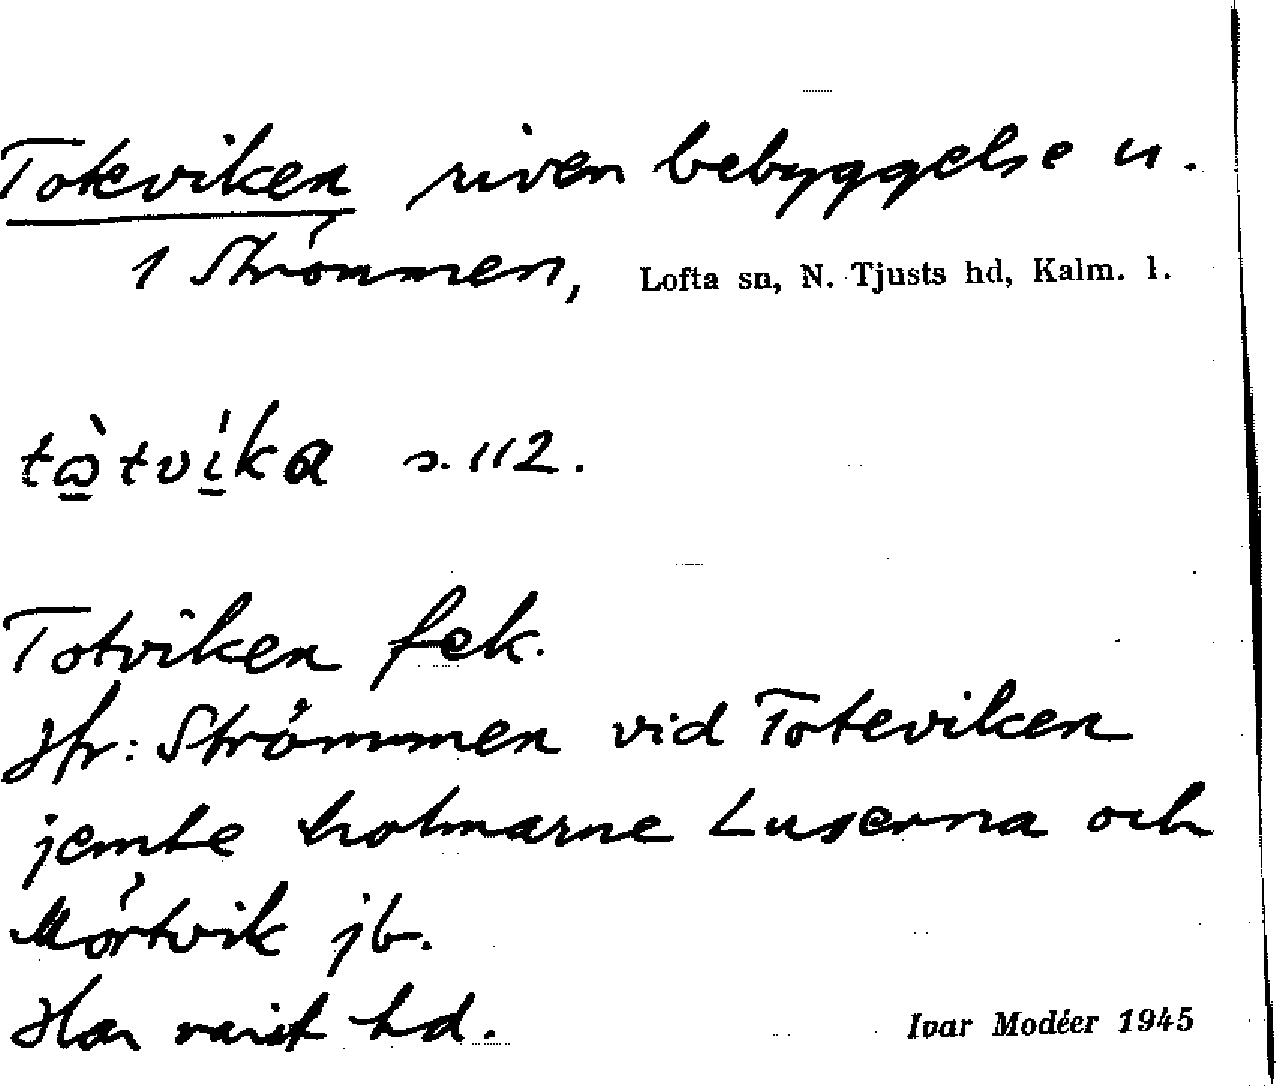 Toteviken riven bebyggelse u.
1 Strömmen, Lofta sn, N. Tjusts hd, Kalm. l.
s. 112.
Totviken fek.
Jfr: Strömmen vid Toteviken
jemte holmarne Luserna och
Mörtvik jb.
Har varit hd.
Ivar Modéer 1945